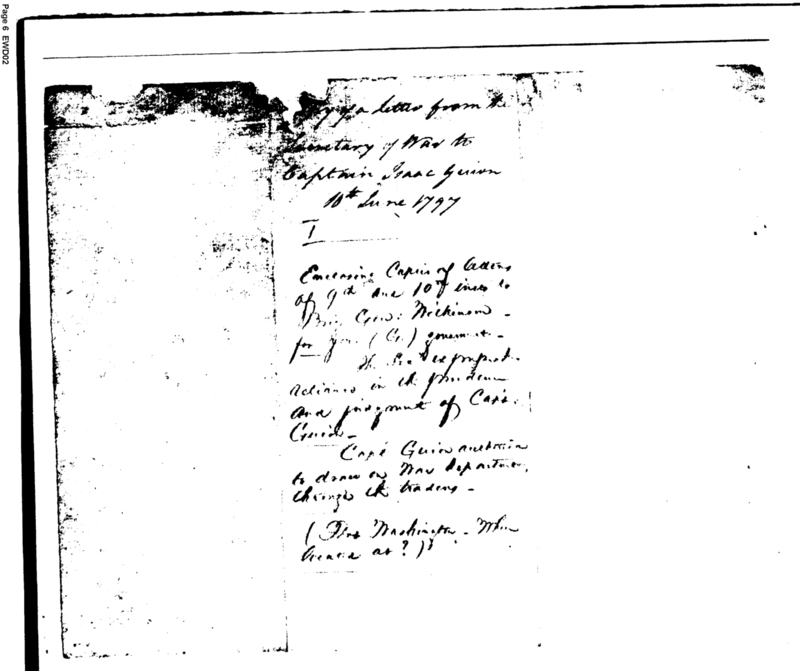 Page 6 EWD02
Copy of a letter from the
Secretary of War to
Captain Isaac Guion
10th June 1797
I
Enclosing Copies of letters
of 9th and 10th inst to
Brig Gen: Wilkinson -
for your (G.)
reliance in the prudence
and judgment of Capt.
Guion -
Capt Guion
to draw on War Department
through the traders -
( Fort Washington - When
at ? )